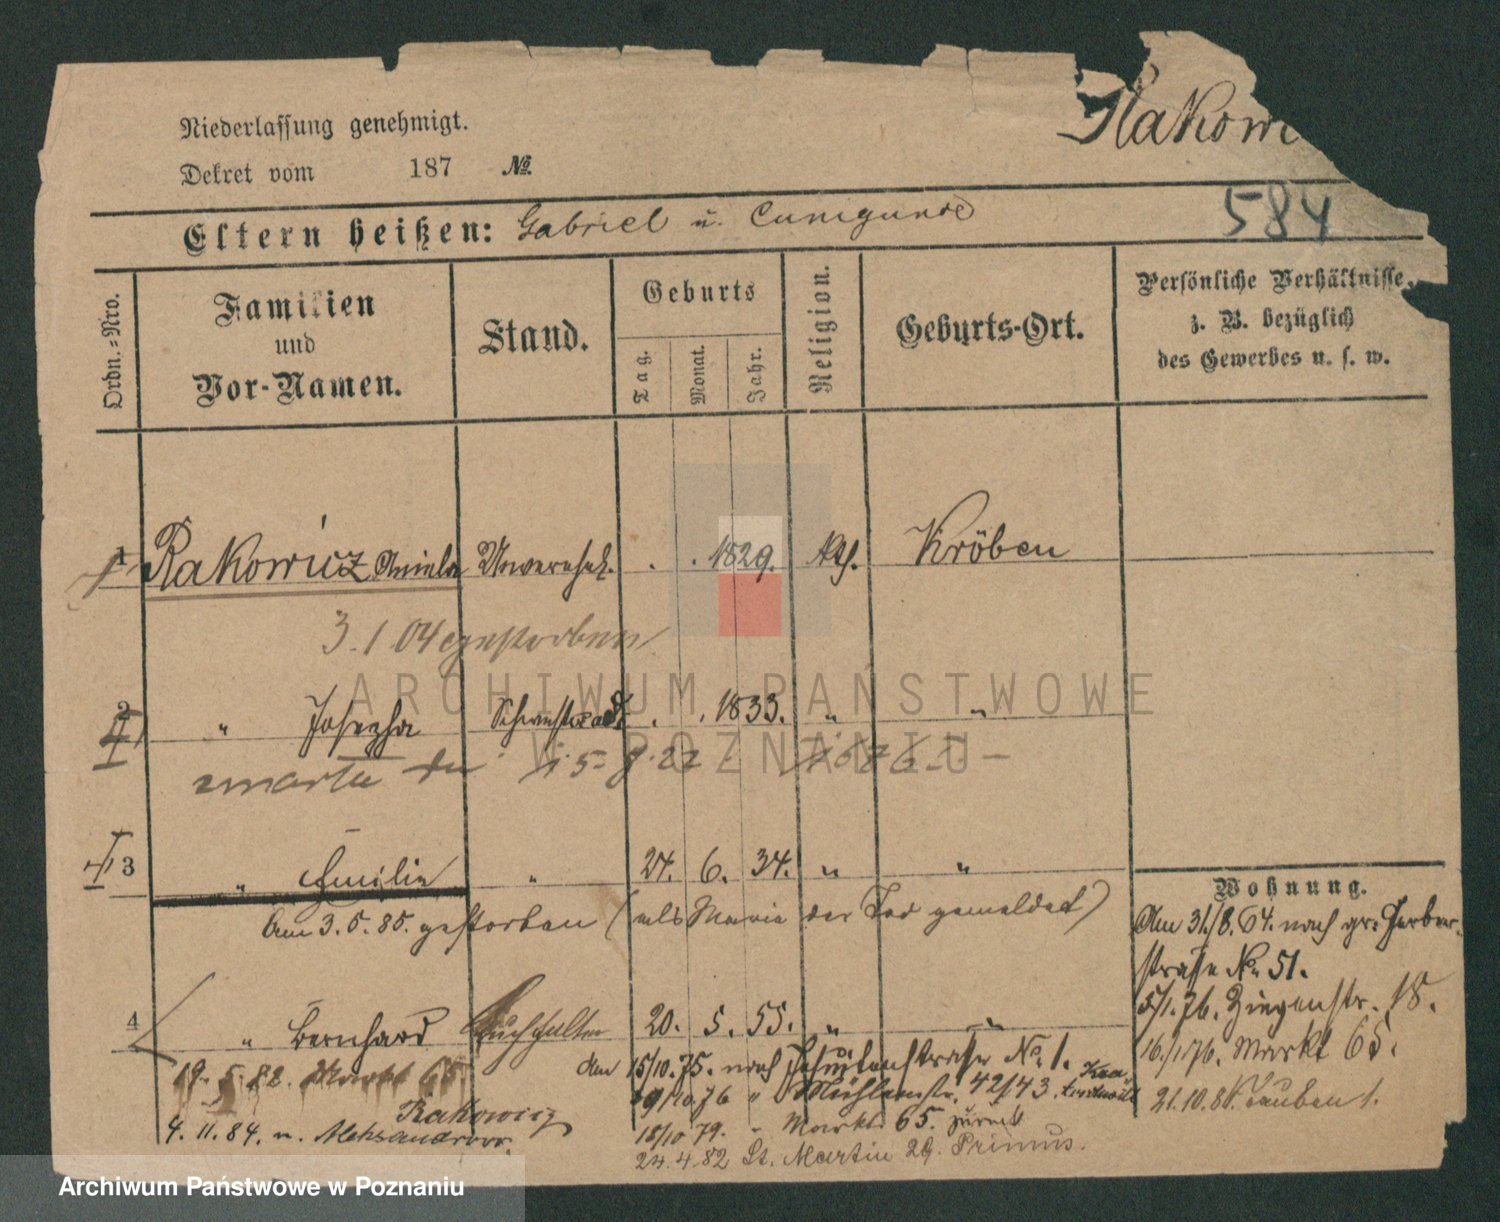 Rakowi
Niederlassung genehmigt.
Dekret vom 187 No
584
Eltern heißen: Gabriel u. Cunigunde
Ordn.-Nro.
Familien
und
Vor-Namen.
Stand.
Geburts
Tag.
Monat.
Jahr.
Religion.
Geburts-Ort.
Persönliche Verhältnisse,
z. B. bezüglich
des Gewerbes u. s. w.
1 Rakowicz Aniela Unverehel. . . 1829. kth. Kröben
3. 1 04 gestorben
2 " Josepha Schwester . . 1833. " "
zmarła
3 " Emilie " 24. 6. 34. " "
Am 3. 5. 85. gestorben (als Marie der Tod gemeldet)
4 " Bernhard Buchhalter 20. 5. 55. " "
19. 5. 82. Markt 65
Rakowicz
4. 11. 84. n.
den 15/10. 75. nach Jesuitenstrasse No. 1.
19/10 76 " Mühlenstr. 42/43.
18/10 79. " Markt 65. zurück
24. 4. 82 St. Martin 29. Primus.
Wohnung.
Am 31./8. 64. nach gr. Gerber-
strasse No. 51.
5/1. 76. Ziegenstr. 18.
16./1 76. Markt 65.
21. 10. 81. Tauben 1.
ARCHIWUM PAŃSTWOWE
W POZNANIU
Archiwum Państwowe w Poznaniu